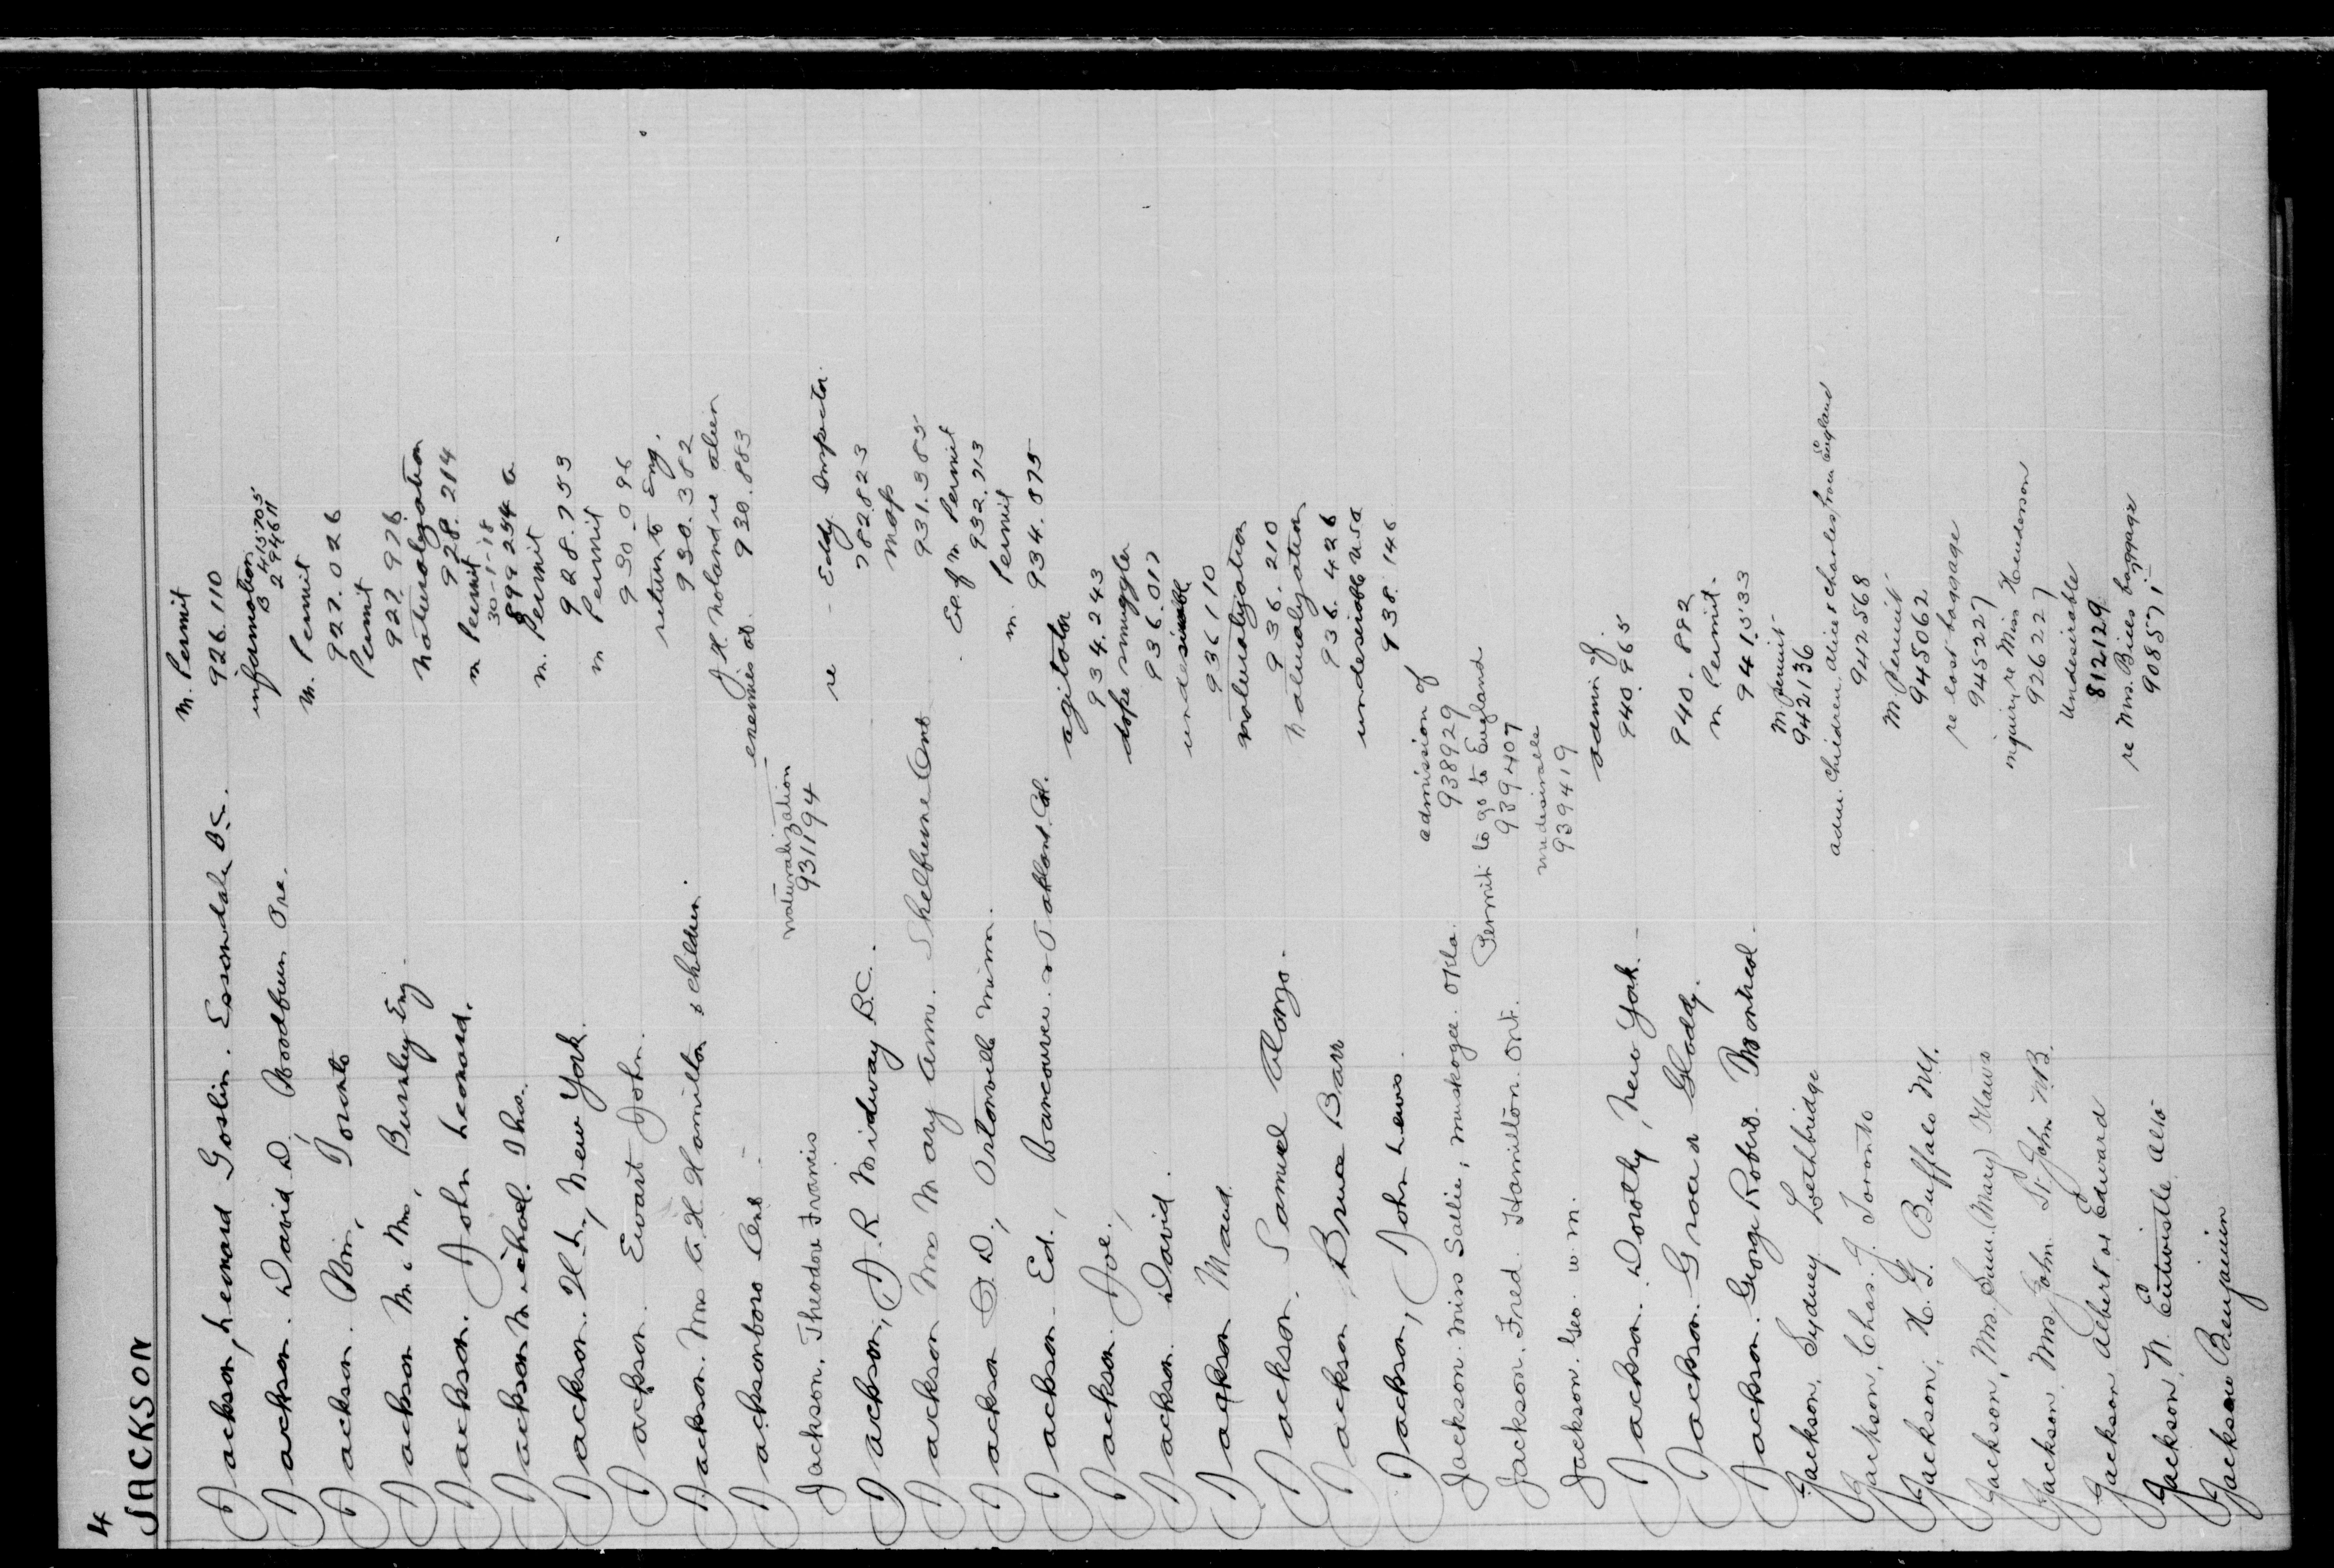 4
JACKSON
Jackson, Leonard Goslin. Essondale B.C. M. Permit
926.110
Jackson. David D, Woodburn Ore. information
B 415705
294611
Jackson. Wm, Toronto M. Permit
927.026
Jackson Mr & Mrs, Burnley Eng. Permit
927.976
Jackson. John Leonard. Naturalization
928.214
Jackson Michael. Thos. m Permit
30-1-18
899254
Jackson. H.L, New York. m. Permit
928.753
Jackson. Ewart John. m Permit
930.096
Jackson. Mrs A.H. Hamilton & children. return to Eng.
930.382
Jacksonboro Ont. J.H. Noland re alien
enemies at. 930.883
Jackson, Theodore Francis naturalization
931194
Jackson, J.R Midway B.C. re - Eddy Inspector.
782823
Jackson Mrs Mary Ann. Shelburne Ont
931.385
Jackson O.D., Ortonville Minn. Ex. of m Permit
932.713
Jackson Ed., Vancouver & Oakland. Cal. m. Permit
934.875
Jackson. Joe., agitator
934.243
Jackson David. dope smuggler
936.017
Jackson Maud. undesirable
936110
Jackson. Samuel Alonzo. naturalization
936.210
Jackson, Bruce Barr Naturalization
936.426
Jackson, John Lewis. undesirable USA
938.146
Jackson. Miss Sallie, Muskogee. Okla. admission of
938929
Jackson. Fred. Hamilton. Ont. Permit to go to England
939407
Jackson. Geo. W. M. undesirable
939419
Jackson. Dorothy, New York. admn of.
940.965
Jackson. Grace Gladdy.
940.882
Jackson. George Robert. m Permit.
941533
Jackson, Sydney Lethbridge M permit
942136
Jackson, Chas. J. Toronto adm. children Alice & Charles from England
942568
Jackson, H. G. Buffalo N.Y. M Permit
945062
Jackson, Mrs. (Mary) re lost baggage
945227
Jackson, Mrs John St. John N.B. inquiry re Miss Henderson
926227
Jackson Albert or Edward Undesirable
812129
Jackson, N. Entwistle Alta re Mrs. baggage
908571
Jackson Benjamin